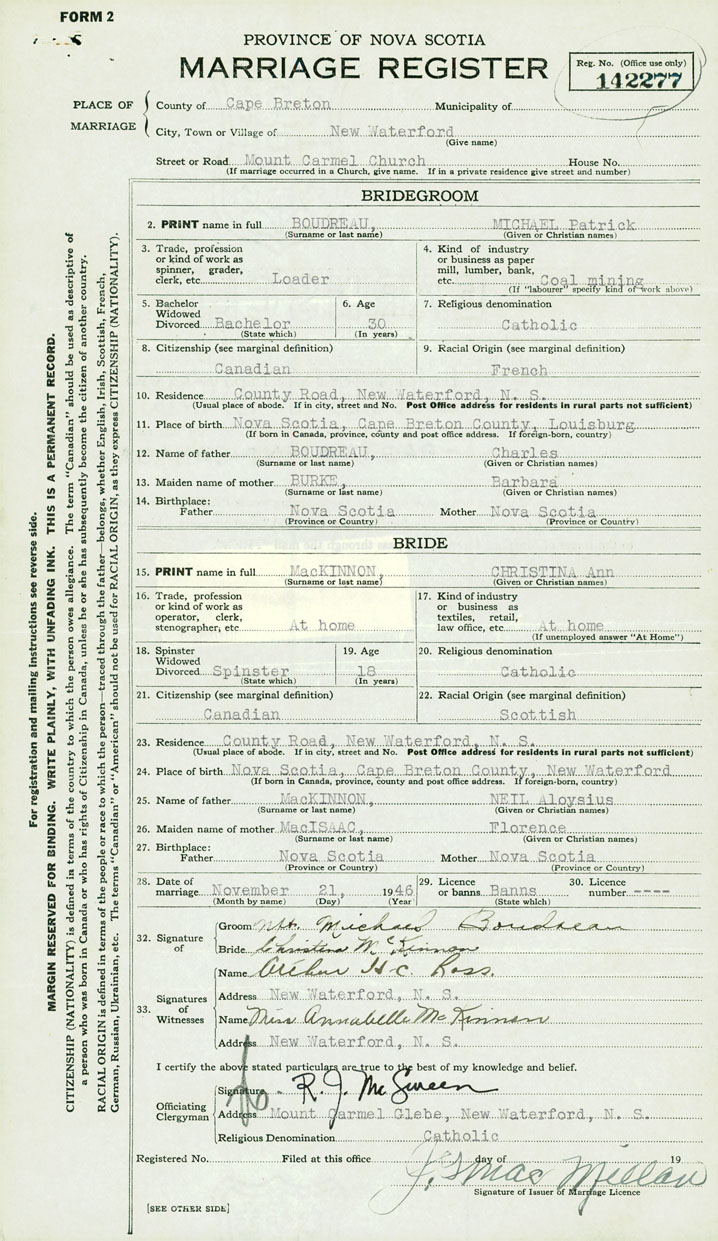 FORM 2
PROVINCE OF NOVA SCOTIA
MARRIAGE REGISTER
Reg. No. (Office use only)
142277
PLACE OF MARRIAGE
County of Cape Breton Municipality of
City, Town or Village of New Waterford
(Give name)
Street or Road Mount Carmel Church House No.
(If marriage occurred in a Church, give name. If in a private residence give street and number)
BRIDEGROOM
2. PRINT name in full BOUDREAU, MICHAEL Patrick
(Surname or last name) (Given or Christian names)
3. Trade, profession or kind of work as spinner, grader, clerk, etc. Loader
4. Kind of industry or business as paper mill, lumber, bank, etc. Coal mining
(If "labourer" specify kind of work above)
5. Bachelor Widowed Divorced Bachelor
(State which)
6. Age 30
(In years)
7. Religious denomination
Catholic
8. Citizenship (see marginal definition)
Canadian
9. Racial Origin (see marginal definition)
French
10. Residence County Road, New Waterford, N. S.
(Usual place of abode. If in city, street and No. Post Office address for residents in rural parts not sufficient)
11. Place of birth Nova Scotia, Cape Breton County, Louisburg
(If born in Canada, province, county and post office address. If foreign-born, country)
12. Name of father BOUDREAU, Charles
(Surname or last name) (Given or Christian names)
13. Maiden name of mother BURKE, Barbara
(Surname or last name) (Given or Christian names)
14. Birthplace:
Father Nova Scotia Mother Nova Scotia
(Province or Country) (Province or Country)
BRIDE
15. PRINT name in full MacKINNON, CHRISTINA Ann
(Surname or last name) (Given or Christian names)
16. Trade, profession or kind of work as operator, clerk, stenographer, etc At home
17. Kind of industry or business as textiles, retail, law office, etc At home
(If unemployed answer "At Home")
18. Spinster Widowed Divorced Spinster
(State which)
19. Age 18
(In years)
20. Religious denomination
Catholic
21. Citizenship (see marginal definition)
Canadian
22. Racial Origin (see marginal definition)
Scottish
23. Residence County Road, New Waterford, N. S.
(Usual place of abode. If in city, street and No. Post Office address for residents in rural parts not sufficient)
24. Place of birth Nova Scotia, Cape Breton County, New Waterford
(If born in Canada, province, county and post office address. If foreign-born, country)
25. Name of father MacKINNON, NEIL Aloysius
(Surname or last name) (Given or Christian names)
26. Maiden name of mother MacISAAC, Florence
(Surname or last name) (Given or Christian names)
27. Birthplace:
Father Nova Scotia Mother Nova Scotia
(Province or Country) (Province or Country)
28. Date of marriage November 21, 1946
(Month by name) (Day) (Year)
29. Licence or banns Banns
(State which)
30. Licence number ----
32. Signature of
Groom Michael Boudreau
Bride Christena McKinnon
33. Signatures of Witnesses
Name Arthur H C Ross.
Address New Waterford, N. S.
Name Miss Annabelle McKinnon
Address New Waterford, N. S.
I certify the above stated particulars are true to the best of my knowledge and belief.
Officiating Clergyman
Signature R. J. McSween
Address Mount Carmel Glebe, New Waterford, N. S.
Religious Denomination Catholic
Registered No. Filed at this office day of 19
Signature of Issuer of Marriage Licence
[SEE OTHER SIDE]
For registration and mailing instructions see reverse side.
MARGIN RESERVED FOR BINDING. WRITE PLAINLY, WITH UNFADING INK. THIS IS A PERMANENT RECORD.
CITIZENSHIP (NATIONALITY) is defined in terms of the country to which the person owes allegiance. The term "Canadian" should be used as descriptive of
a person who was born in Canada or who has rights of Citizenship in Canada, unless he or she has subsequently become the citizen of another country.
RACIAL ORIGIN is defined in terms of the people or race to which the person—traced through the father—belongs, whether English, Irish, Scottish, French,
German, Russian, Ukrainian, etc. The terms "Canadian" or "American" should not be used for RACIAL ORIGIN, as they express CITIZENSHIP (NATIONALITY).